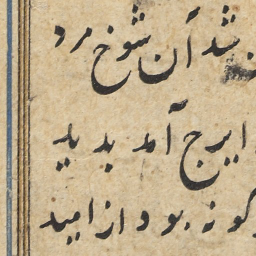 شد آن شوخ مرد
ایرج آمد بدید
گونه بود از امید